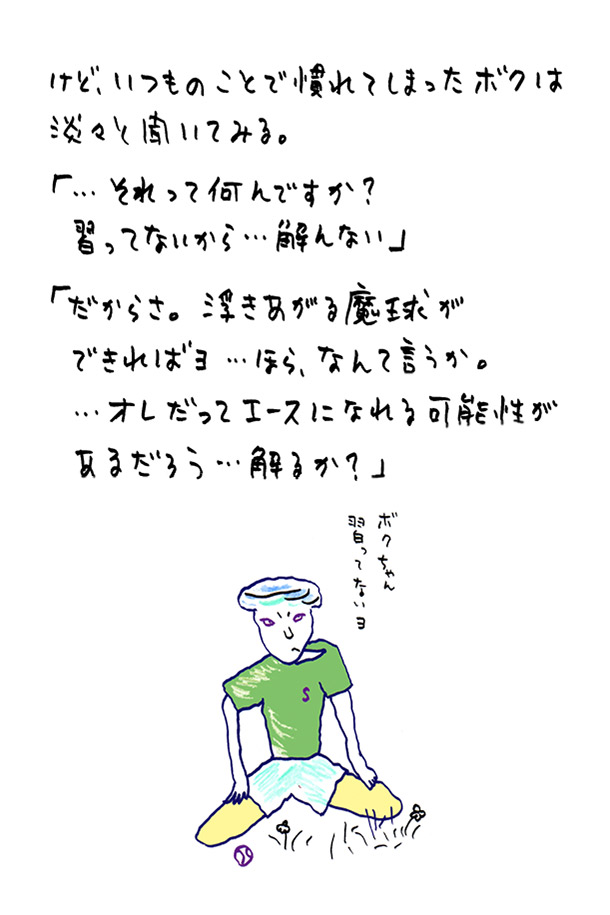 けど、いつものことで慣れてしまったボクは
淡々と聞いてみる。
「… それって何んですか?
習ってないから…解んない」
「だからさ。浮きあがる魔球が
できればヨ…ほら、なんて言うか。
…オレだってエースになれる可能性が
あるだろう…解るか?」
ボクちゃん
習ってないヨ
S